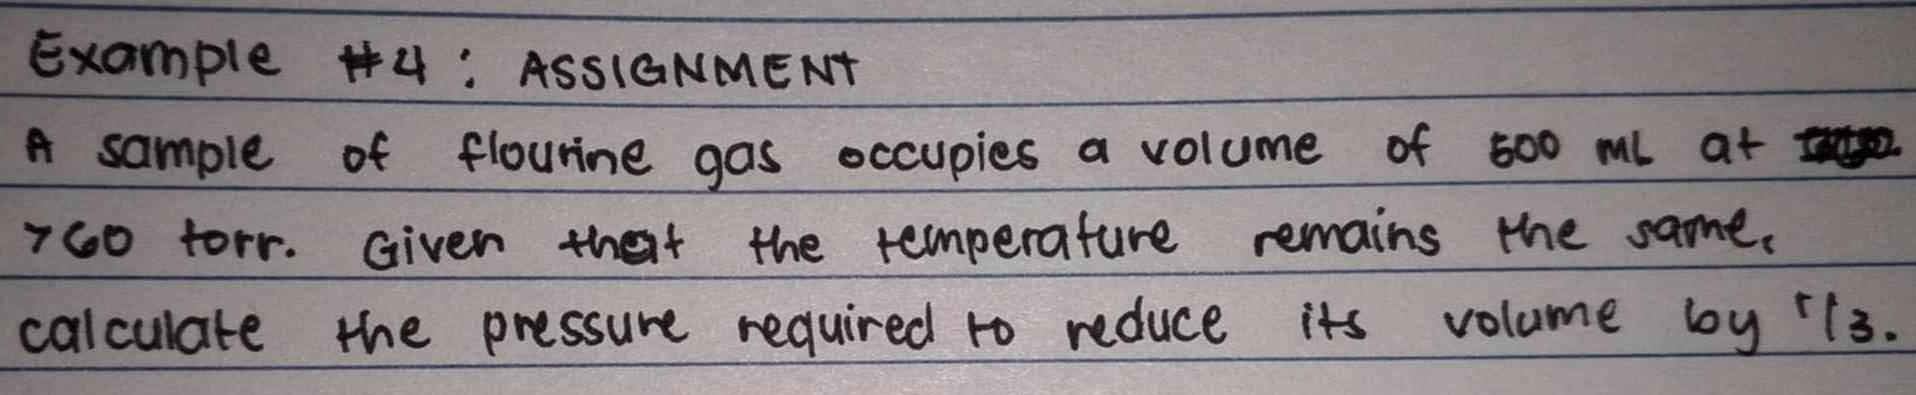 Example #4 : ASSIGNMENT
A sample of flourine gas occupies a volume of 500 mL at
760 torr. Given that the temperature remains the same,
calculate the pressure required to reduce its volume by 1/3.